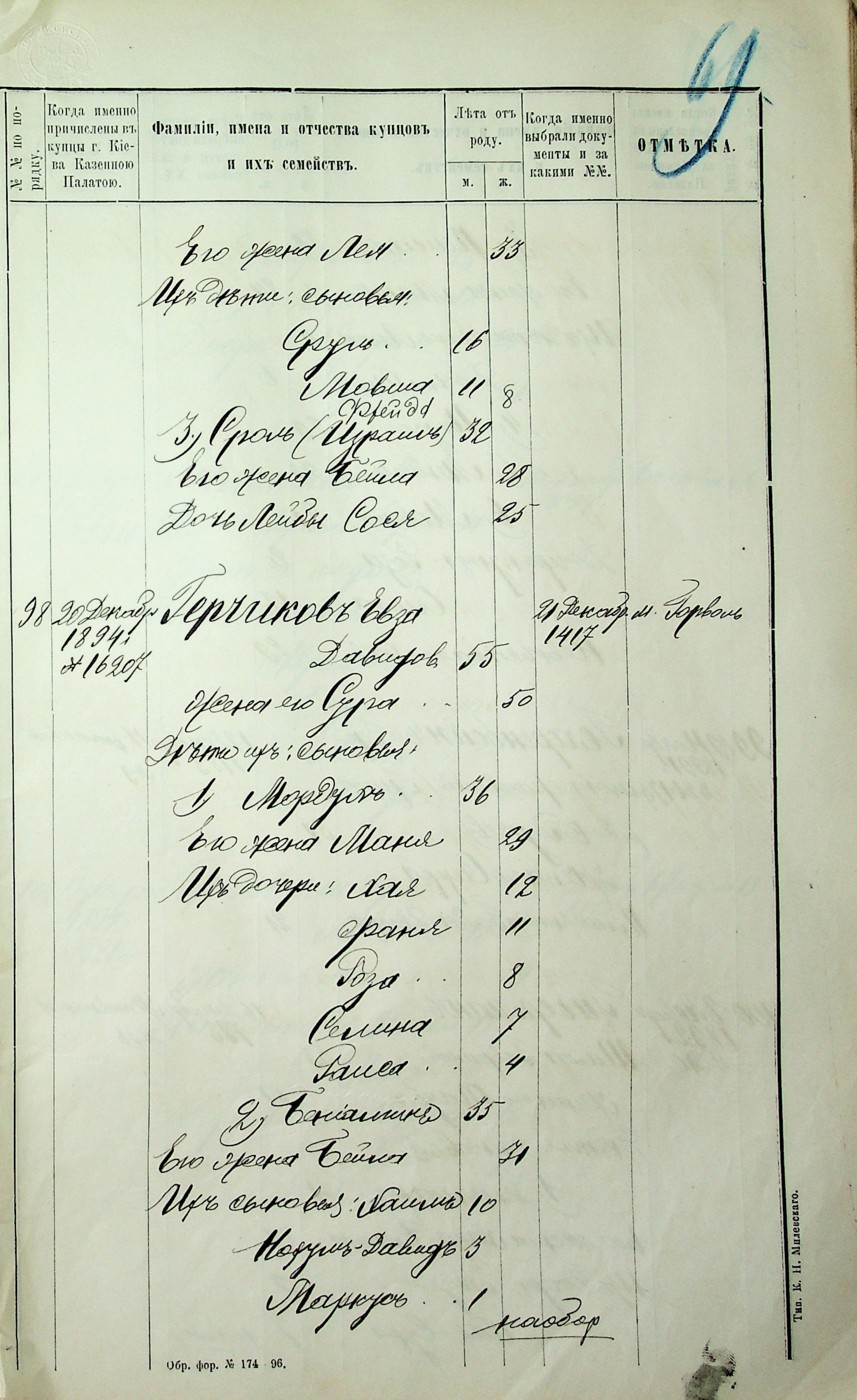 69
№№ по по-
рядку.
Когда именно
причислены въ
купцы г. Кіе-
ва Казенною
Палатою.
Фамиліи, имена и отчества купцовъ
и ихъ семействъ.
Лѣта отъ
роду.
м. ж.
Когда именно
выбрали доку-
менты и за
какими №№.
ОТМѢТКА.
Его жена Лея 33
Ихъ дѣти: сыновья:
Сруль 16
Мовша 11
Фрейда 8
3) Сроль (Израиль) 32
Его жена Бейла 28
Дочь Лейбы Сося 25
98 20 Декабр. Герчиковъ Евза 21 Декабр. м. Горволь
1894 г. 1417
№ 16207 Давидов. 55
Жена его Сура 50
Дѣти ихъ: сыновья:
1) Мордухъ 36
Его жена Маня 29
Ихъ дочери: Хая 12
Фаня 11
Роза 8
Селина 7
Раиса 4
2) Беніаминъ 35
Его жена Бейла 31
Ихъ сыновья: Хаимъ 10
Нохумъ-Давидъ 3
Маркусъ 1
наобор
Обр. фор. № 174 96.
Тип. К. Н. Милевскаго.